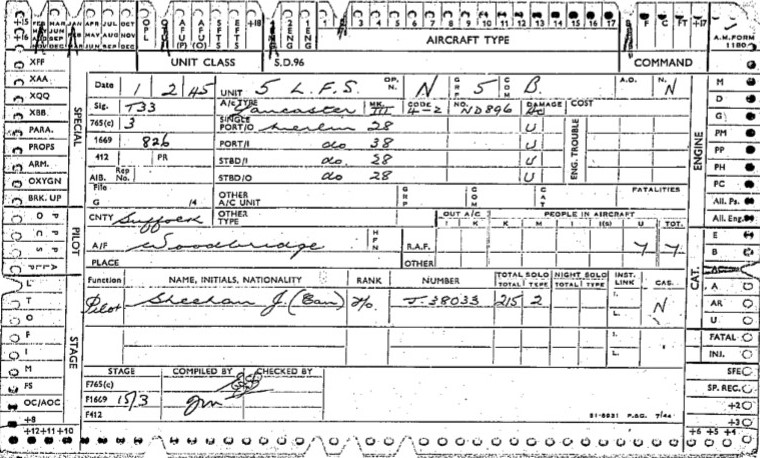 +15 FEB MAR APR JUL OCT
+16 MAY JUNE AUG NOV
OPL
AFU (P)
AFU (O)
SFTS
EFTS
+18
2 ENG
1 ENG
1 3 4 5 6 7 8 9 10 11 12 13 14 15 16 17
F C FT +17
A.M. FORM 1180
AIRCRAFT TYPE
UNIT CLASS S.D.96 COMMAND
XFF
XAA
XQQ
XBB
PARA.
PROPS
ARM.
OXYGEN
BRK. UP
SPECIAL
PILOT
STAGE
Date 1 2 45 UNIT 5 L.F.S. OP. N. N GRP 5 COM B. A.O. N. N
Sig. T33 A/C TYPE Lancaster MK. III CODE 4-2 NO. ND896 DAMAGE COST
765(c) 3 SINGLE PORT/O Merlin 28 U
1669 826 PORT/I do 38 U
412 PR STBD/I do. 28 U
AIB. Rep No. STBD/O do 28 U
ENG. TROUBLE
File G /4 OTHER A/C UNIT GRP COM CAT FATALITIES
CNTY Suffolk OTHER TYPE OUT A/C PEOPLE IN AIRCRAFT
I K K M I I(S) U TOT.
A/F Woodbridge HFN R.A.F. 7 7.
PLACE OTHER
Function NAME, INITIALS, NATIONALITY RANK NUMBER TOTAL SOLO NIGHT SOLO INST. LINK CAS.
TOTAL TYPE TOTAL TYPE
Pilot Sheehan J. (Can) F/O. J 38033 215 2 I. L. N
I. L.
STAGE COMPILED BY CHECKED BY
F765(c)
F1669 15/3
F412
51-8031 P.SG. 7/44
M
D
G
PM
PP
PH
PC
All. Ps.
All. Eng.
ENGINE
E
B
AC
A
AR
U
CAT.
FATAL
INJ.
SFE
SP. REC.
+2
+3
+6 +5 +4
L
T
O
F
I
M
FS
OC/AOC
+8
+12 +11 +10